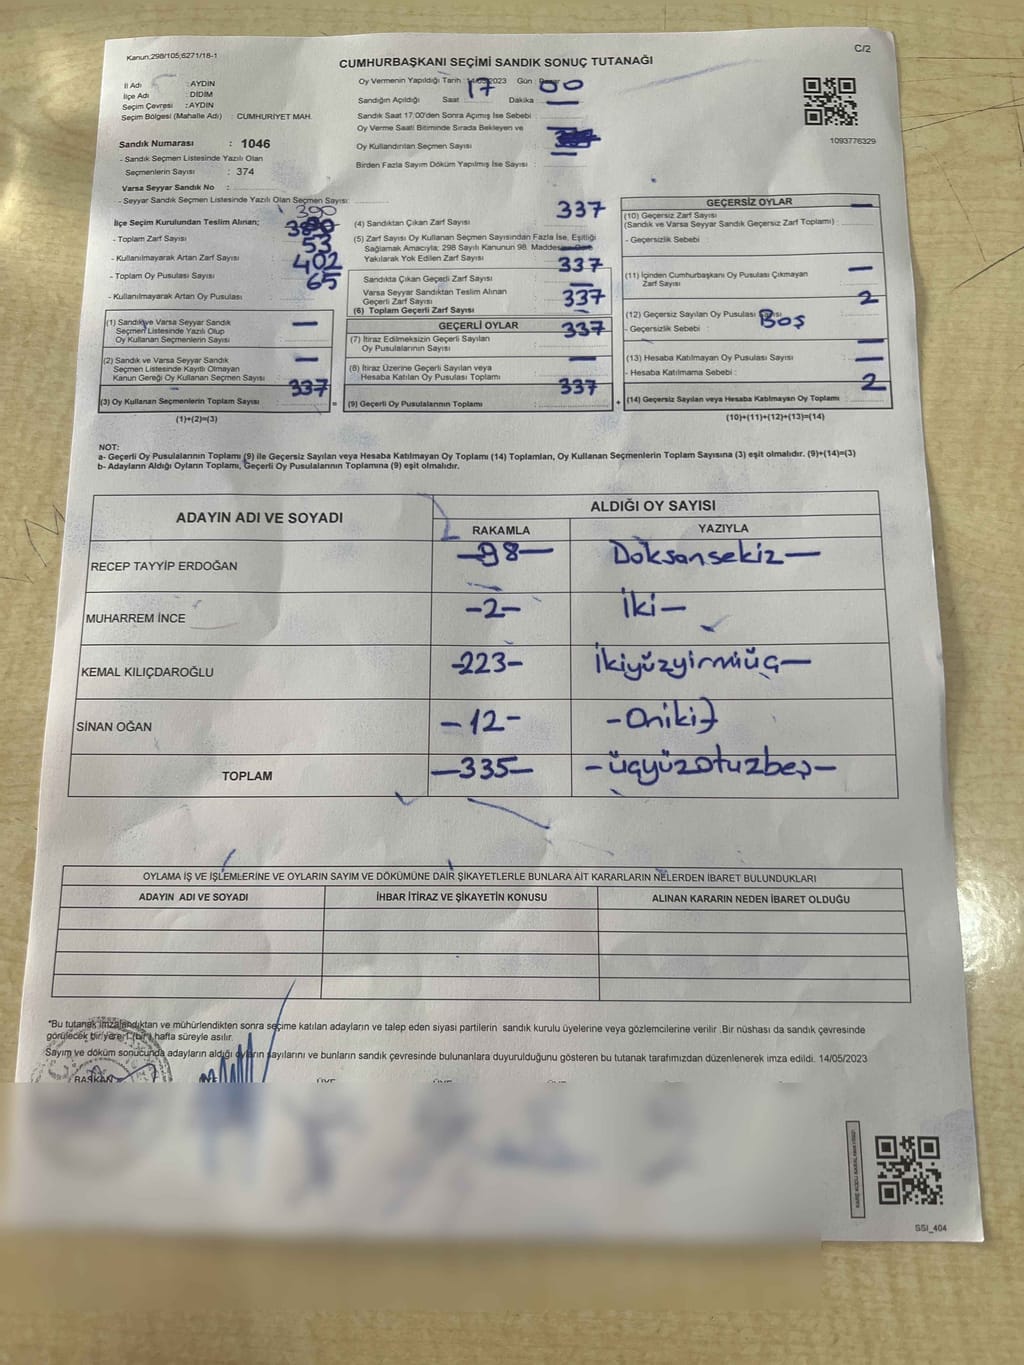 Kanun;298/105;6271/18-1
C/2
CUMHURBAŞKANI SEÇİMİ SANDIK SONUÇ TUTANAĞI
İl Adı : AYDIN
İlçe Adı : DİDİM
Seçim Çevresi : AYDIN
Seçim Bölgesi (Mahalle Adı) : CUMHURİYET MAH.
Sandık Numarası : 1046
- Sandık Seçmen Listesinde Yazılı Olan
Seçmenlerin Sayısı : 374
Varsa Seyyar Sandık No :
- Seyyar Sandık Seçmen Listesinde Yazılı Olan Seçmen Sayısı:
Oy Vermenin Yapıldığı Tarih : 14/05/2023 Gün :
Sandığın Açıldığı Saat 17 Dakika : 00
Sandık Saat 17:00'den Sonra Açımış İse Sebebi :
Oy Verme Saati Bitiminde Sırada Bekleyen ve
Oy Kullandırılan Seçmen Sayısı :
Birden Fazla Sayım Döküm Yapılmış İse Sayısı :
1093776329
İlçe Seçim Kurulundan Teslim Alınan;
- Toplam Zarf Sayısı : 390
- Kullanılmayarak Artan Zarf Sayısı : 53
- Toplam Oy Pusulası Sayısı : 402
- Kullanılmayarak Artan Oy Pusulası : 65
(1) Sandık ve Varsa Seyyar Sandık
Seçmen Listesinde Yazılı Olup
Oy Kullanan Seçmenlerin Sayısı : —
(2) Sandık ve Varsa Seyyar Sandık
Seçmen Listesinde Kayıtlı Olmayan
Kanun Gereği Oy Kullanan Seçmen Sayısı : —
(3) Oy Kullanan Seçmenlerin Toplam Sayısı : 337
(1)+(2)=(3)
(4) Sandıktan Çıkan Zarf Sayısı : 337
(5) Zarf Sayısı Oy Kullanan Seçmen Sayısından Fazla İse, Eşitliği
Sağlamak Amacıyla; 298 Sayılı Kanunun 98. Maddesine Göre
Yakılarak Yok Edilen Zarf Sayısı : —
Sandıkta Çıkan Geçerli Zarf Sayısı : 337
Varsa Seyyar Sandıktan Teslim Alınan
Geçerli Zarf Sayısı
(6) Toplam Geçerli Zarf Sayısı : 337
GEÇERLİ OYLAR
(7) İtiraz Edilmeksizin Geçerli Sayılan
Oy Pusulalarının Sayısı : 337
(8) İtiraz Üzerine Geçerli Sayılan veya
Hesaba Katılan Oy Pusulası Toplamı : —
(9) Geçerli Oy Pusulalarının Toplamı : 337
GEÇERSİZ OYLAR
(10) Geçersiz Zarf Sayısı : —
(Sandık ve Varsa Seyyar Sandık Geçersiz Zarf Toplamı) :
- Geçersizlik Sebebi :
(11) İçinden Cumhurbaşkanı Oy Pusulası Çıkmayan
Zarf Sayısı : —
(12) Geçersiz Sayılan Oy Pusulası Sayısı : 2
- Geçersizlik Sebebi : Boş
(13) Hesaba Katılmayan Oy Pusulası Sayısı : —
- Hesaba Katılmama Sebebi : —
(14) Geçersiz Sayılan veya Hesaba Katılmayan Oy Toplamı : 2
(10)+(11)+(12)+(13)=(14)
NOT:
a- Geçerli Oy Pusulalarının Toplamı (9) ile Geçersiz Sayılan veya Hesaba Katılmayan Oy Toplamı (14) Toplamları, Oy Kullanan Seçmenlerin Toplam Sayısına (3) eşit olmalıdır. (9)+(14)=(3)
b- Adayların Aldığı Oyların Toplamı, Geçerli Oy Pusulalarının Toplamına (9) eşit olmalıdır.
ADAYIN ADI VE SOYADI
ALDIĞI OY SAYISI
RAKAMLA YAZIYLA
RECEP TAYYİP ERDOĞAN —98— Doksansekiz—
MUHARREM İNCE -2- İki—
KEMAL KILIÇDAROĞLU -223- İkiyüzyirmiüç—
SİNAN OĞAN -12- -Oniki-
TOPLAM —335— -üçyüzotuzbeş—
OYLAMA İŞ VE İŞLEMLERİNE VE OYLARIN SAYIM VE DÖKÜMÜNE DAİR ŞİKAYETLERLE BUNLARA AİT KARARLARIN NELERDEN İBARET BULUNDUKLARI
ADAYIN ADI VE SOYADI İHBAR İTİRAZ VE ŞİKAYETİN KONUSU ALINAN KARARIN NEDEN İBARET OLDUĞU
*Bu tutanak imzalandıktan ve mühürlendikten sonra seçime katılan adayların ve talep eden siyasi partilerin sandık kurulu üyelerine veya gözlemcilerine verilir .Bir nüshası da sandık çevresinde
görülecek bir yere1 (bir) hafta süreyle asılır.
Sayım ve döküm sonucunda adayların aldığı oyların sayılarını ve bunların sandık çevresinde bulunanlara duyurulduğunu gösteren bu tutanak tarafımızdan düzenlenerek imza edildi. 14/05/2023
BAŞKAN
SSI_404